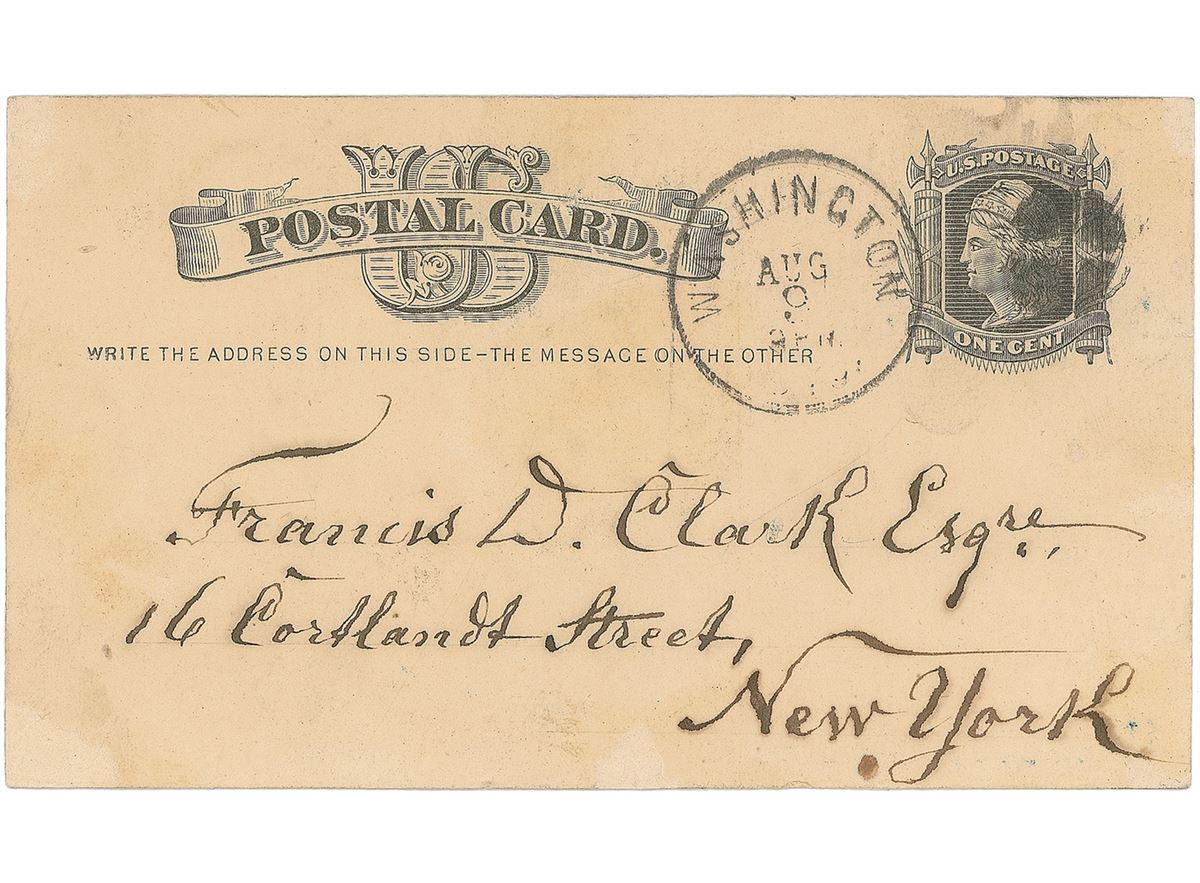 US
POSTAL CARD.
WRITE THE ADDRESS ON THIS SIDE-THE MESSAGE ON THE OTHER
WASHINGTON
AUG
U.S. POSTAGE
ONE CENT
Francis D. Clark Esqre.,
16 Cortlandt Street,
New York